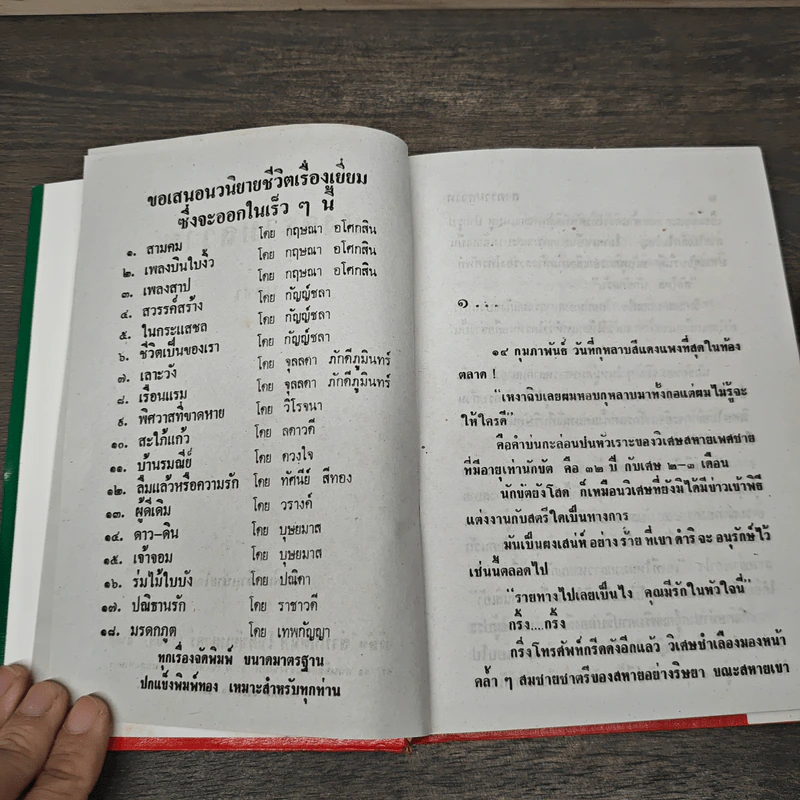 ขอเสนอนวนิยายชีวิตเรื่องเยี่ยม
ซึ่งจะออกในเร็ว ๆ นี้
๑. สามคม โดย กฤษณา อโศกสิน
๒. เพลงบินใบงิ้ว โดย กฤษณา อโศกสิน
๓. เพลงสาป โดย กฤษณา อโศกสิน
๔. สวรรค์สร้าง โดย กัญญ์ชลา
๕. ในกระแสชล โดย กัญญ์ชลา
๖. ชีวิตเป็นของเรา โดย กัญญ์ชลา
๗. เลาะวัง โดย จุลลดา ภักดีภูมินทร์
๘. เรือนแรม โดย จุลลดา ภักดีภูมินทร์
๙. พิศวาสที่ขาดหาย โดย วิโรจนา
๑๐. สะใภ้แก้ว โดย ลดาวดี
๑๑. บ้านรมณีย์ โดย ดวงใจ
๑๒. ลืมแล้วหรือความรัก โดย ทัศนีย์ สีทอง
๑๓. ผู้ดีเดิม โดย วรางค์
๑๔. ดาว-ดิน โดย บุษยมาส
๑๕. เจ้าจอม โดย บุษยมาส
๑๖. ร่มไม้ใบบัง โดย ปณิตา
๑๗. ปณิธานรัก โดย ราชาวดี
๑๘. มรดกภูต โดย เทพกัญญา
ทุกเรื่องจัดพิมพ์ ขนาดมาตรฐาน
ปกแข็งพิมพ์ทอง เหมาะสำหรับทุกท่าน
๑...
๑๔ กุมภาพันธ์ วันที่กุหลาบสีแดงแพงที่สุดในท้อง
ตลาด !
"เหงาฉิบเลยผมหอบกุหลาบมาทั้งกอแต่ผมไม่รู้จะ
ให้ใครดี"
คือคำบ่นกะล่อนปนหัวเราะของวิเศษสหายเพศชาย
ที่มีอายุเท่านักขัต คือ ๓๒ ปี กับเศษ ๒-๓ เดือน
นักขัตยังโสด ก็เหมือนวิเศษที่ยังมิได้มีข่าวเข้าพิธี
แต่งงานกับสตรีใดเป็นทางการ
มันเป็นผงเสน่ห์ อย่าง ร้าย ที่เขา ดำริ จะ อนุรักษ์ไว้
เช่นนี้ตลอดไป
"รายทางไปเลยเป็นไง คุณมีรักในหัวใจนี่"
กริ๊ง....กริ๊ง
กริ่งโทรศัพท์กรีดดังอีกแล้ว วิเศษชำเลืองมองหน้า
คล้ำ ๆ สมชายชาตรีของสหายอย่างริษยา ขณะสหายเขา